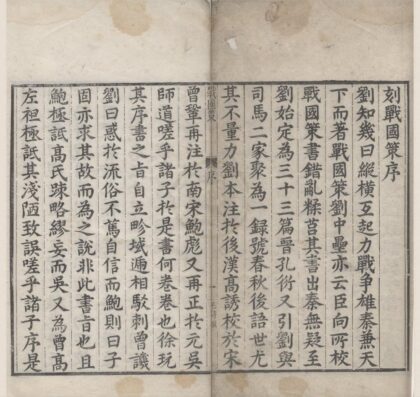 刻戰國策序
劉知幾曰縱橫互起力戰爭雄秦兼天
下而著戰國策劉中壘亦云臣向所校
戰國策書錯亂糅莒其書出秦無疑至
劉始定為三十三篇晉孔衍又引劉與
司馬二家聚為一錄號春秋後語世尤
其不量力劉本注於後漢高誘校於宋
曾鞏再注於南宋鮑彪又再正於元吳
師道嗟乎諸子於是書何卷卷也徐玩
其序書之旨自立畛域遞相駁刺曾譏
劉曰惑於流俗不篤自信而鮑則曰子
固亦求其故而為之說非此書旨也且
鮑極詆高氏踈略繆妄而吳又為曾高
左袒極詆其淺陋致誤嗟乎諸子序是